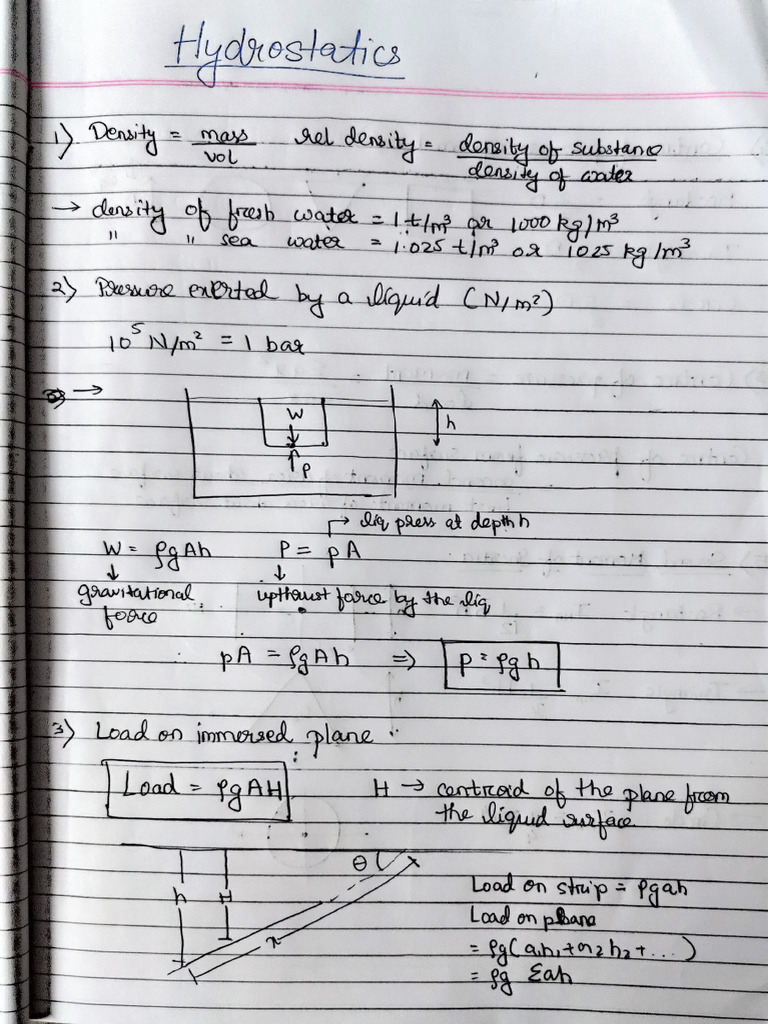 Hydrostatics
1) Density = mass/vol rel density = density of substance/density of water
→ density of fresh water = 1 t/m³ or 1000 kg/m³
" " sea water = 1.025 t/m³ or 1025 kg/m³
2) Pressure exerted by a liquid (N/m²)
10⁵ N/m² = 1 bar
→
W
h
P
→ liq press at depth h
W = ρgAh P = pA
↓ ↓
gravitational force upthrust force by the liq
pA = ρgAh ⇒ p = ρgh
3) Load on immersed plane
Load = ρgAH H → centroid of the plane from
the liquid surface
θ
h H x
Load on strip = ρgah
Load on plane
= ρg(a₁h₁+a₂h₂+...)
= ρg Σah